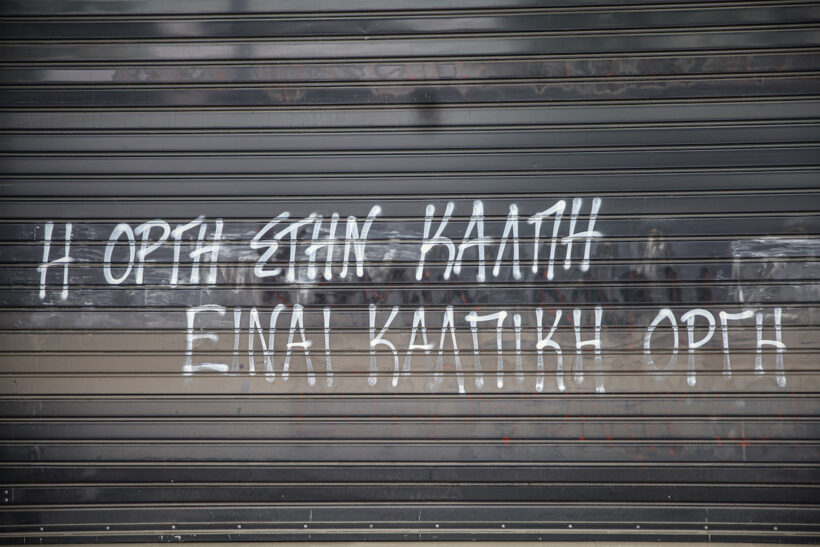 Η ΟΡΓΗ ΣΤΗΝ ΚΑΛΠΗ
ΕΙΝΑΙ ΚΑΛΠΙΚΗ ΟΡΓΗ